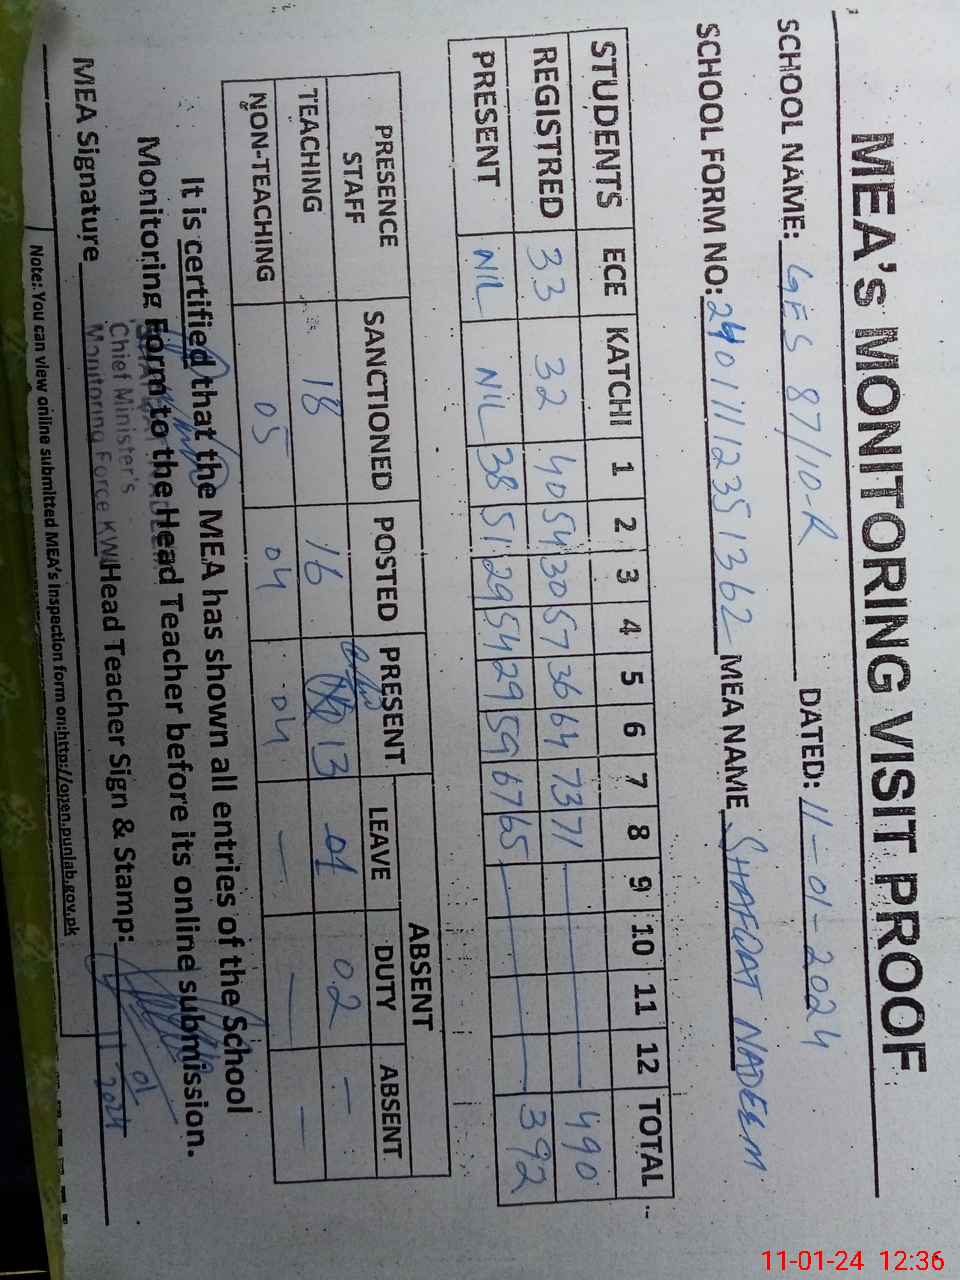 MEA's MONITORING VISIT PROOF
SCHOOL NAME: GES 87/10-R DATED: 11-01-2024
SCHOOL FORM NO: 24011112351362 MEA NAME SHAFQAT NADEEM
STUDENTS ECE KATCHI 1 2 3 4 5 6 7 8 9 10 11 12 TOTAL
REGISTRED 33 32 40 54 30 57 36 64 73 71 — 490
PRESENT NIL NIL 38 51 29 54 29 59 67 65 — 392
ABSENT
PRESENCE STAFF SANCTIONED POSTED PRESENT LEAVE DUTY ABSENT
TEACHING 18 16 13 01 02 —
NON-TEACHING 05 04 04 — — —
It is certified that the MEA has shown all entries of the School
Monitoring Form to the Head Teacher before its online submission.
Chief Minister's
Monitoring Force KWL
MEA Signature Head Teacher Sign & Stamp: 11 01 2024
Note:. You can view online submitted MEA's Inspection form on:http://open.punlab.gov.pk
11-01-24 12:36